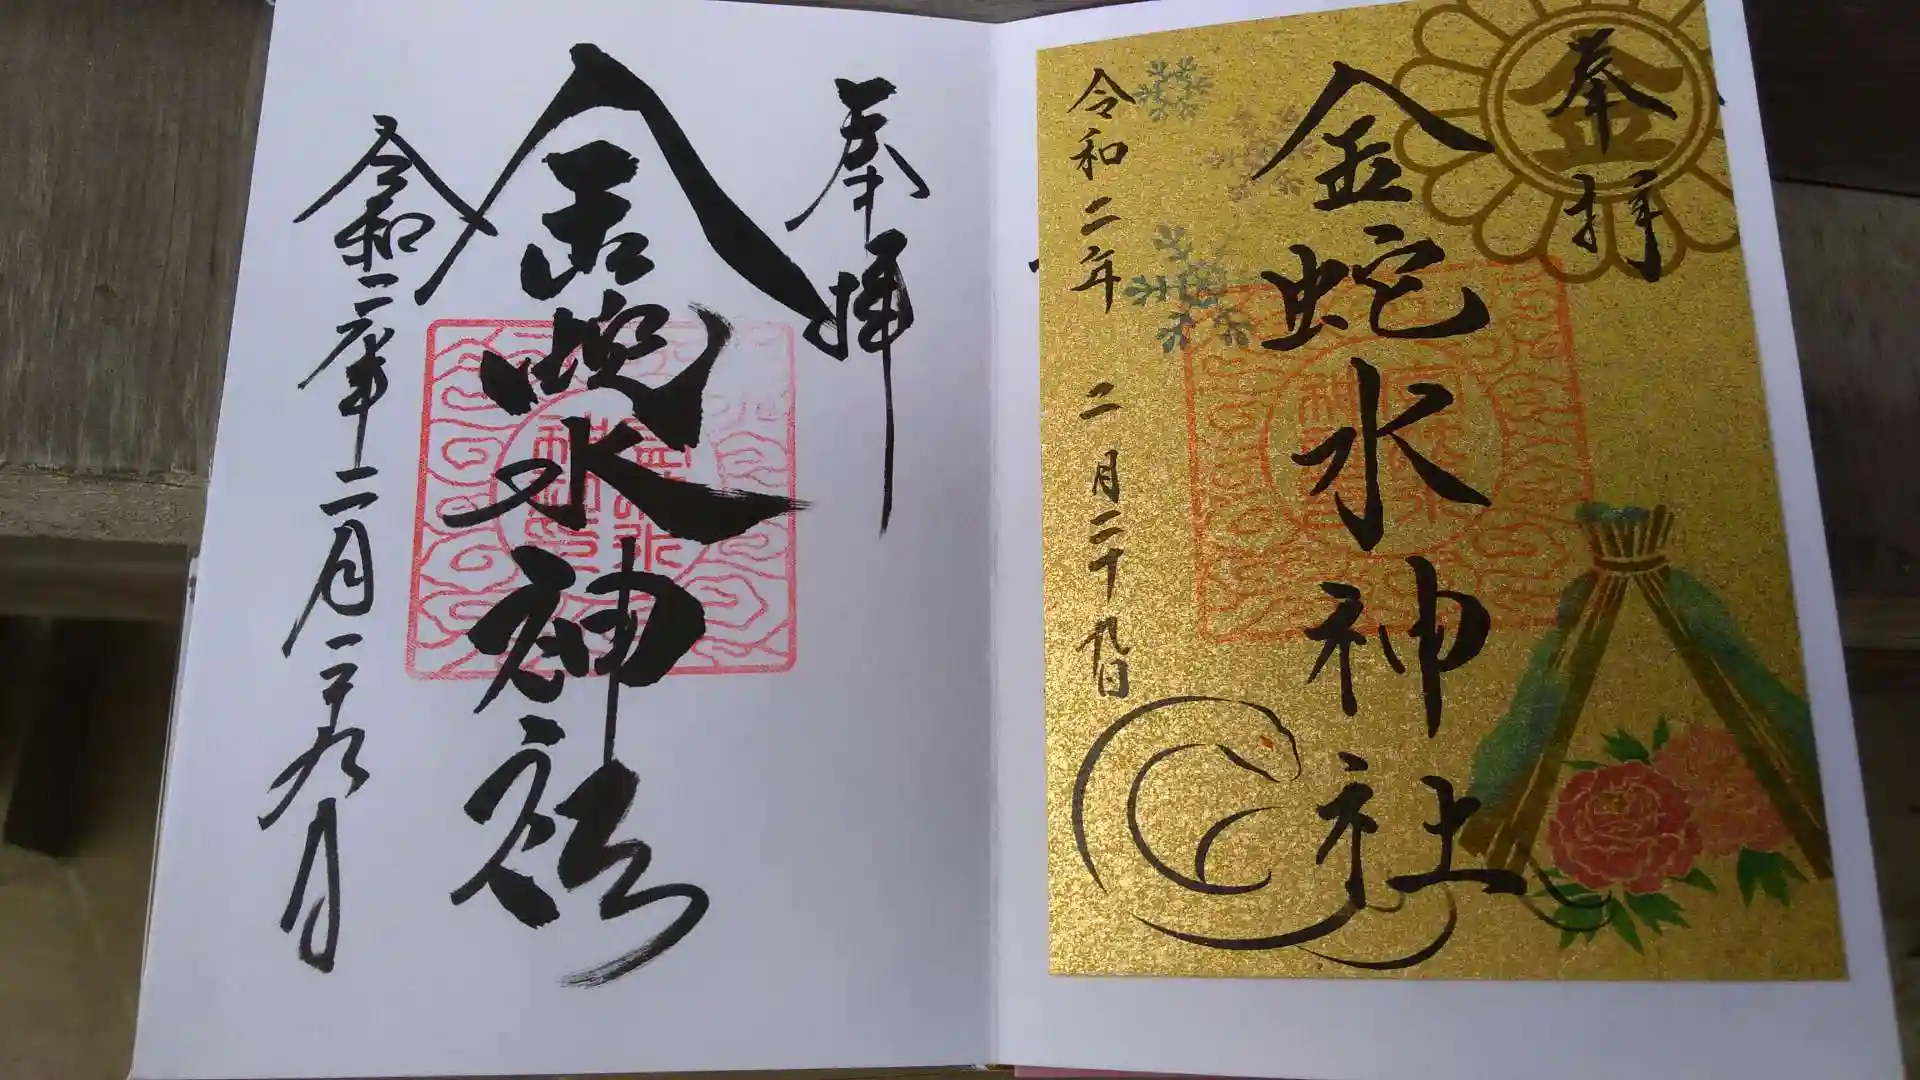 奉拝
金蛇水神社
令和二年二月二十九日
奉拝
金蛇水神社
令和二年 二月二十九日
金